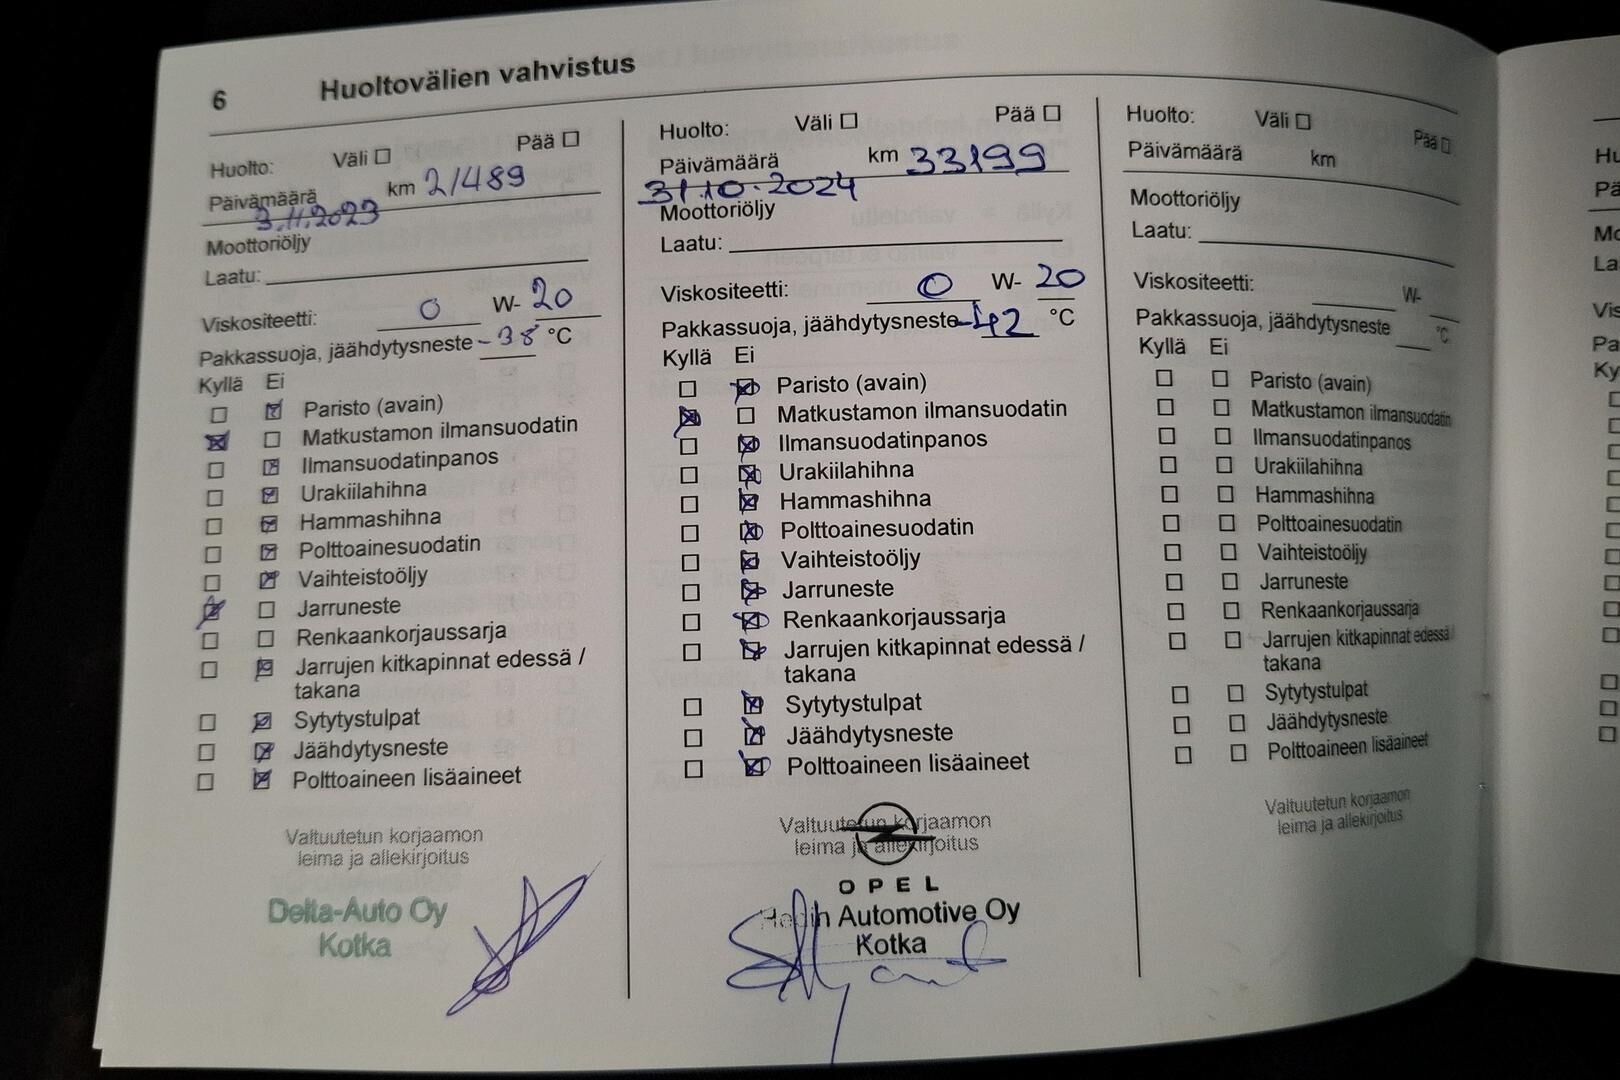 6 Huoltovälien vahvistus
Huolto: Väli Pää
Päivämäärä km 21489
3.11.2023
Moottoriöljy
Laatu:
Viskositeetti: 0 W- 20
Pakkassuoja, jäähdytysneste -38 °C
Kyllä Ei
Paristo (avain)
Matkustamon ilmansuodatin
Ilmansuodatinpanos
Urakiilahihna
Hammashihna
Polttoainesuodatin
Vaihteistoöljy
Jarruneste
Renkaankorjaussarja
Jarrujen kitkapinnat edessä /
takana
Sytytystulpat
Jäähdytysneste
Polttoaineen lisäaineet
Valtuutetun korjaamon
leima ja allekirjoitus
Delta-Auto Oy
Kotka
Huolto: Väli Pää
Päivämäärä km 33199
31.10.2024
Moottoriöljy
Laatu:
Viskositeetti: 0 W- 20
Pakkassuoja, jäähdytysneste -42 °C
Kyllä Ei
Paristo (avain)
Matkustamon ilmansuodatin
Ilmansuodatinpanos
Urakiilahihna
Hammashihna
Polttoainesuodatin
Vaihteistoöljy
Jarruneste
Renkaankorjaussarja
Jarrujen kitkapinnat edessä /
takana
Sytytystulpat
Jäähdytysneste
Polttoaineen lisäaineet
Valtuutetun korjaamon
leima ja allekirjoitus
OPEL
Hedin Automotive Oy
Kotka
Huolto: Väli Pää
Päivämäärä km
Moottoriöljy
Laatu:
Viskositeetti: W-
Pakkassuoja, jäähdytysneste °C
Kyllä Ei
Paristo (avain)
Matkustamon ilmansuodatin
Ilmansuodatinpanos
Urakiilahihna
Hammashihna
Polttoainesuodatin
Vaihteistoöljy
Jarruneste
Renkaankorjaussarja
Jarrujen kitkapinnat edessä /
takana
Sytytystulpat
Jäähdytysneste
Polttoaineen lisäaineet
Valtuutetun korjaamon
leima ja allekirjoitus
Hu
Pä
Mo
La
Vis
Pa
Ky